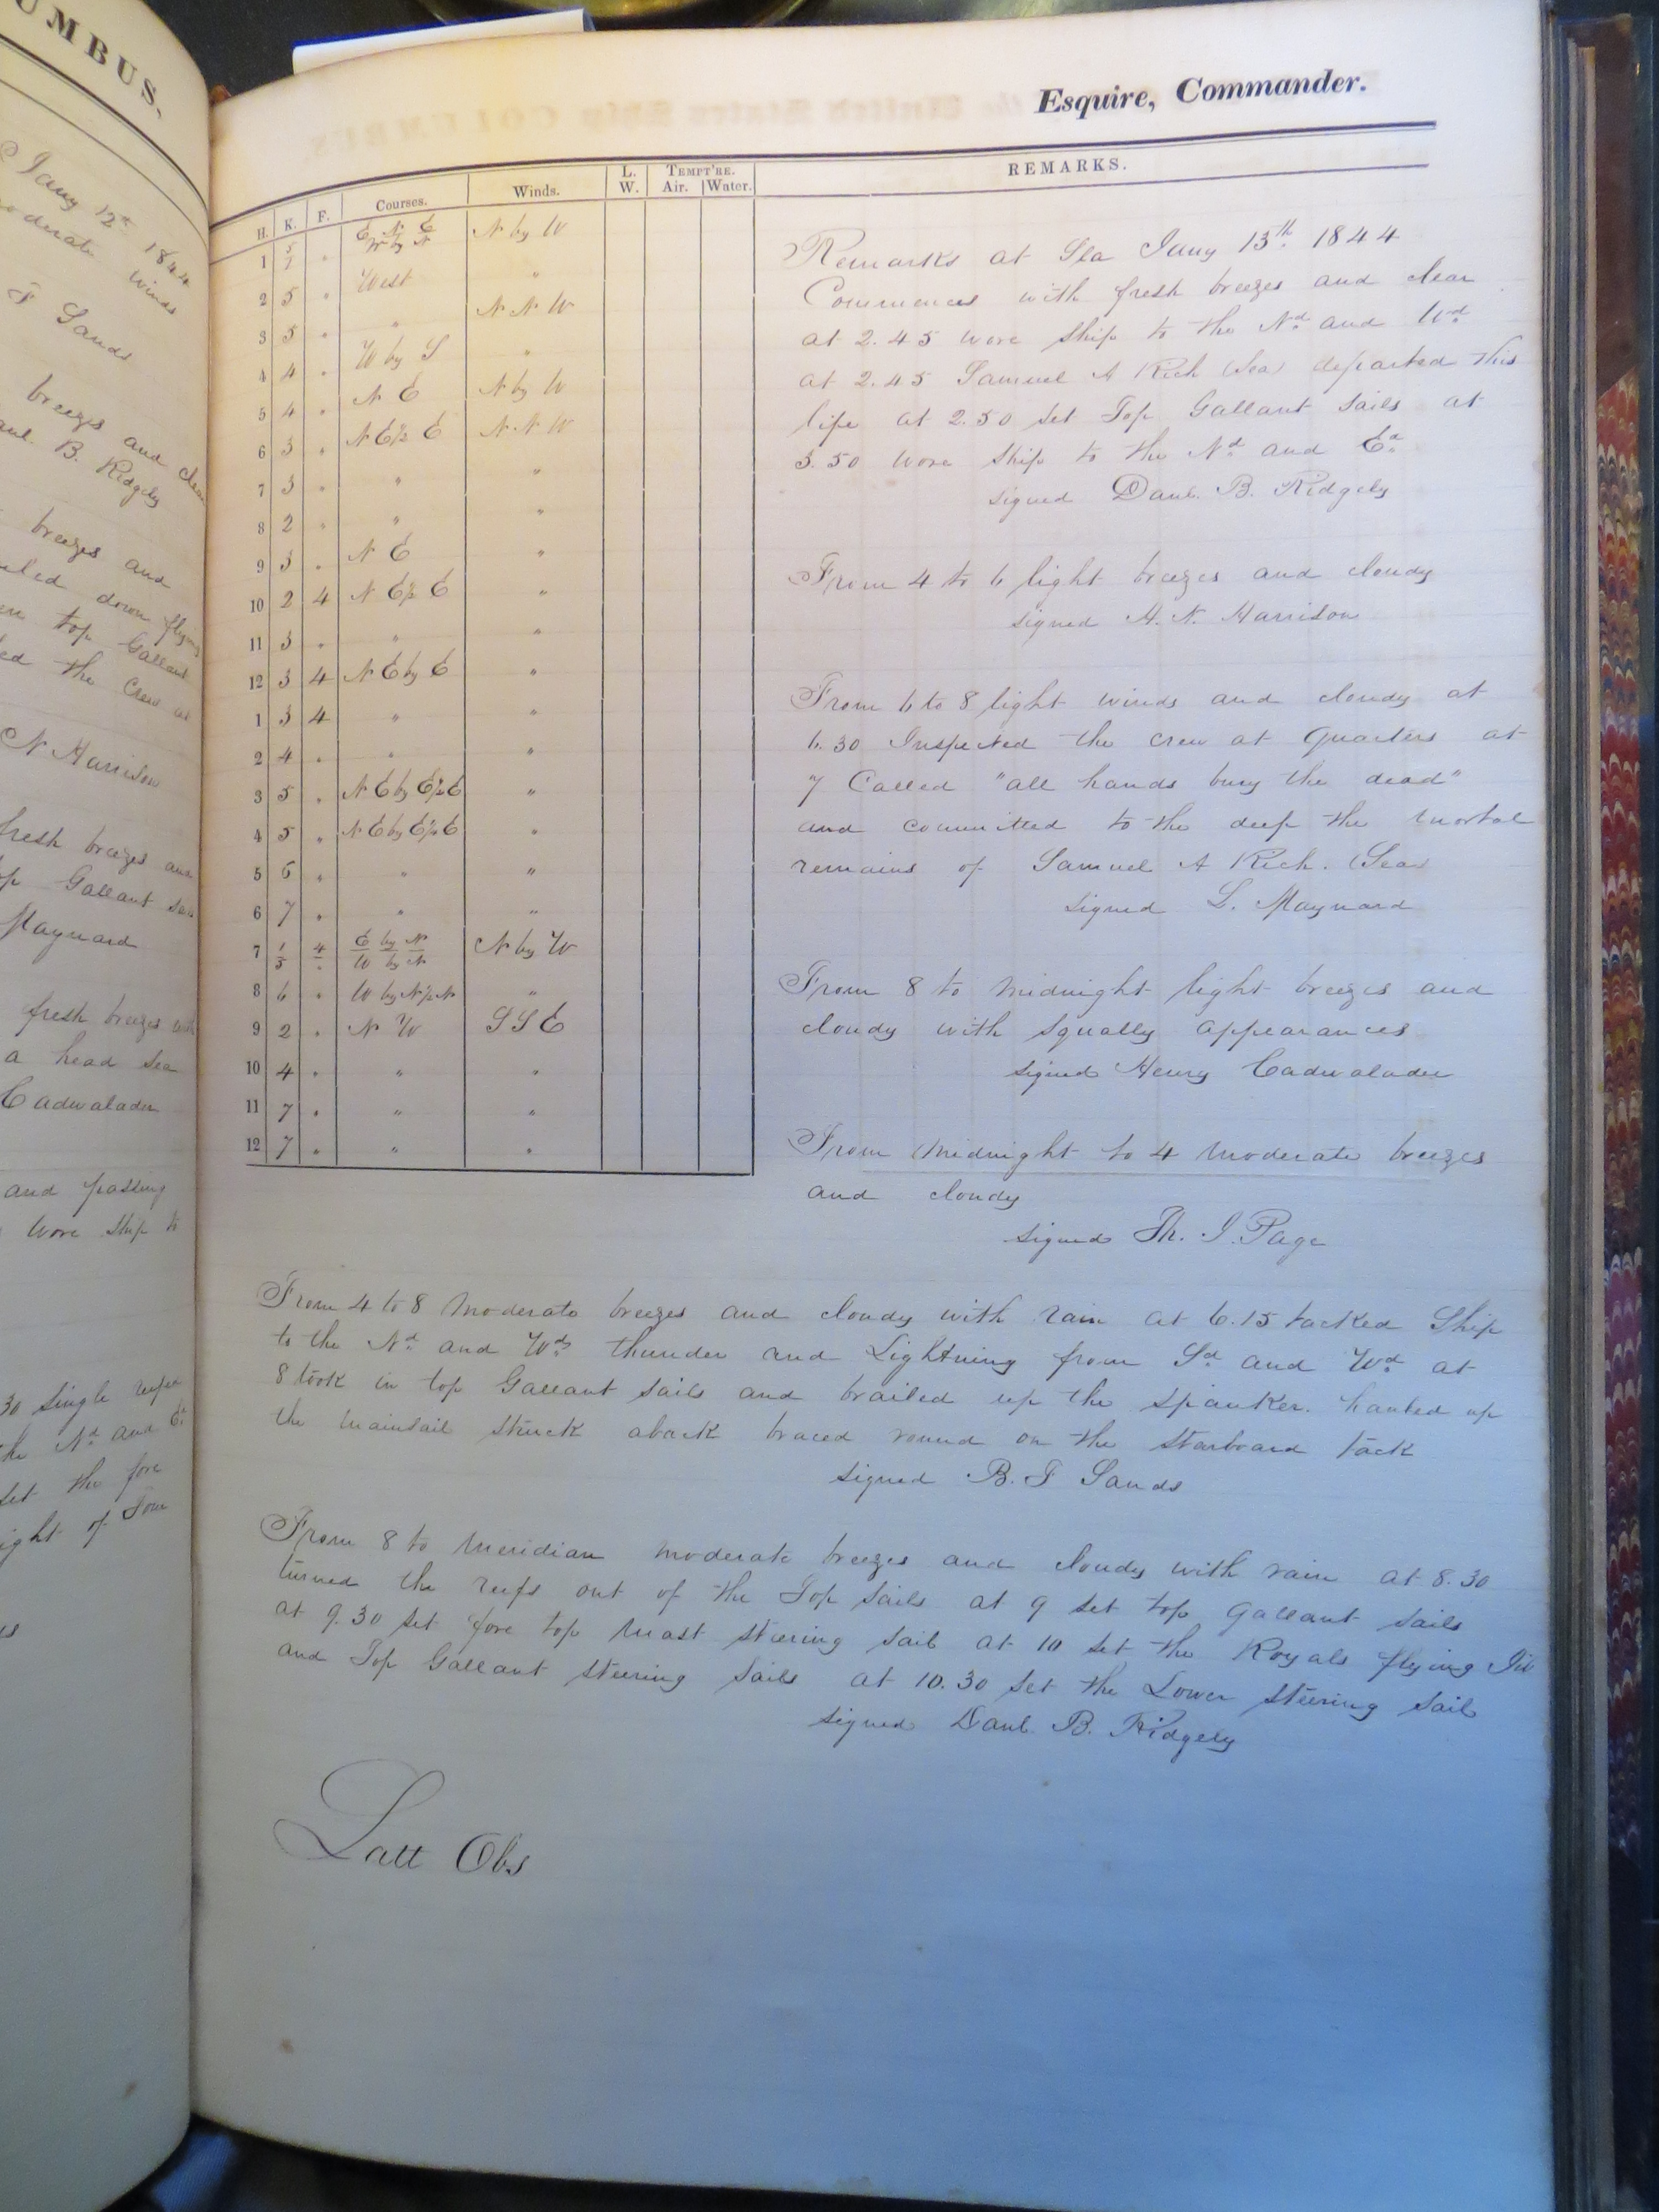 UMBUS.
Jany 12th 1844
moderate winds
F Sands
breezes and clear
Danl. B. Ridgely
breezes and
down flying
top Gallant
the Crew at
N Harrison
fresh breezes and
Gallant sails
Maynard
fresh breezes with
a head sea
Cadwalader
and passing
wore ship to
30 single reefed
the Nd and Ed
set the fore
of Tom
Esquire, Commander.
H. K. F. Courses. Winds. L. W. TEMPT'RE. Air. Water. REMARKS.
1 5/2 " E N E / W by N N by W
2 5 " West "
3 5 " " N N W
4 4 " W by S "
5 4 " N E N by W
6 3 " N E ½ E N N W
7 3 " " "
8 2 " " "
9 3 " N E "
10 2 4 N E ½ E "
11 3 " " "
12 3 4 N E by E "
1 3 4 " "
2 4 " " "
3 5 " N E by E ½ E "
4 5 " N E by E ½ E "
5 6 " " "
6 7 " " "
7 1/5 4/" E by N / W by N N by W
8 6 " W by N ½ N "
9 2 " N W S S E
10 4 " " "
11 7 " " "
12 7 " " "
Remarks at Sea Jany 13th 1844
Commences with fresh breezes and clear
at 2.45 wore ship to the Nd and Wd
at 2.45 Samuel A Rich (Sea) departed this
life at 2.50 set Top Gallant sails at
3.50 wore ship to the Nd and Ed
signed Danl. B. Ridgely
From 4 to 6 light breezes and cloudy
signed H. N. Harrison
From 6 to 8 light winds and cloudy at
6.30 Inspected the crew at Quarters at
7 Called "all hands bury the dead"
and committed to the deep the mortal
remains of Samuel A Rich. (Sea)
signed L. Maynard
From 8 to midnight light breezes and
cloudy with squally appearances
signed Henry Cadwalader
From midnight to 4 moderate breezes
and cloudy
signed Th. J. Page
From 4 to 8 moderate breezes and cloudy with rain at 6.15 tacked Ship
to the Nd and Wd thunder and Lightning from Sd and Wd at
8 took in top Gallant sails and brailed up the spanker. hauled up
the mainsail struck aback braced round on the starboard tack
signed B. F Sands
From 8 to meridian moderate breezes and cloudy with rain at 8.30
turned the reefs out of the Top sails at 9 set top Gallant sails
at 9.30 set fore top mast steering sail at 10 set the Royals flying Jib
and Top Gallant steering sails at 10.30 set the Lower steering sail
signed Danl. B. Ridgely
Latt Obs